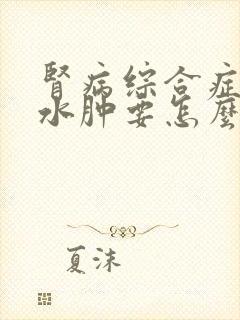 腎病综合症
水肿要怎麼
夏沫